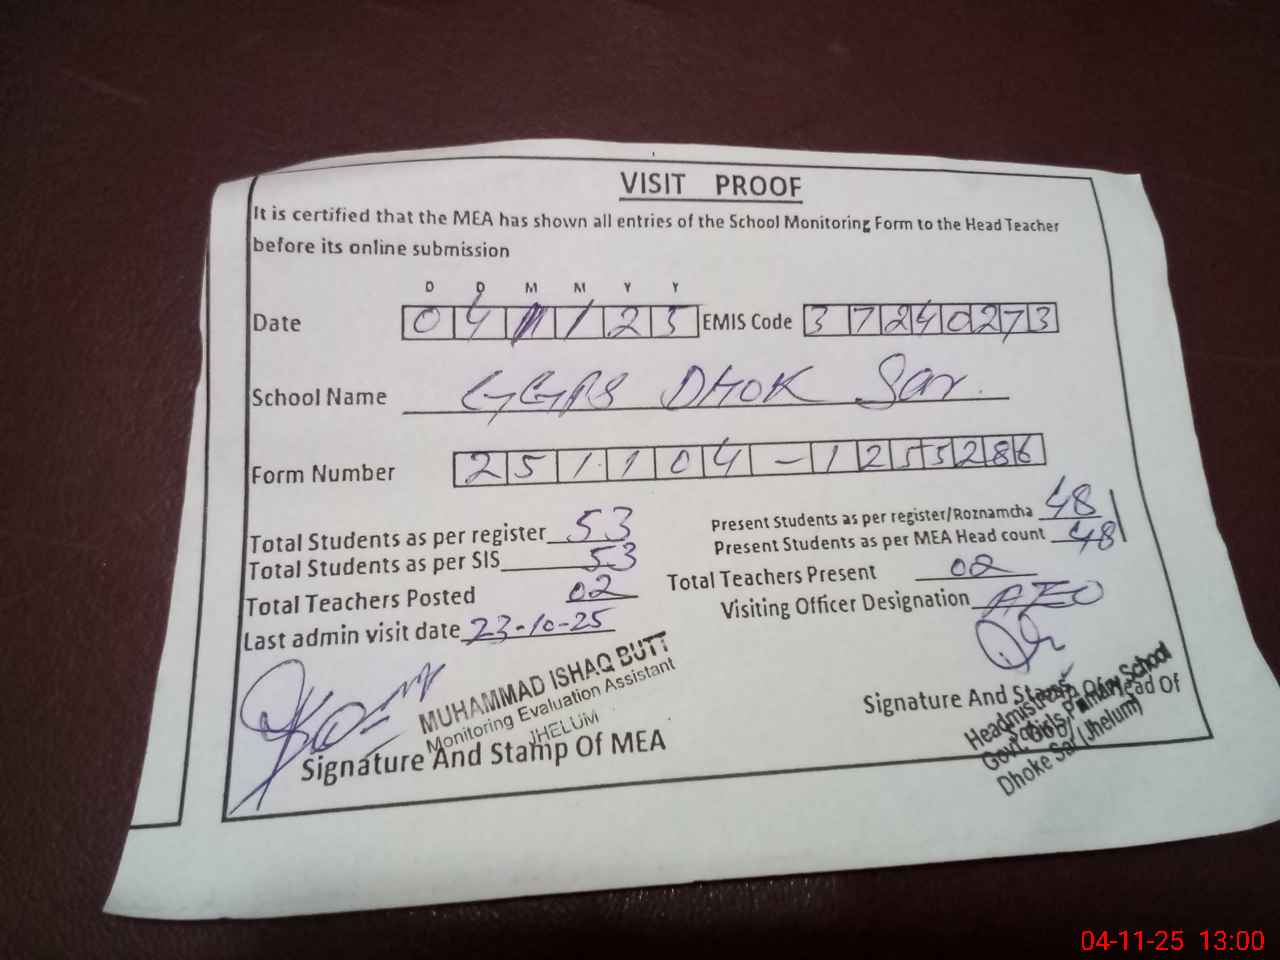 VISIT PROOF
It is certified that the MEA has shown all entries of the School Monitoring Form to the Head Teacher
before its online submission
D D M M Y Y
Date 04 11 25 EMIS Code 37240273
School Name GGPS DHOK Sar.
Form Number 251104-1255286
Total Students as per register 53 Present Students as per register/Roznamcha 48
Total Students as per SIS 53 Present Students as per MEA Head count 48
Total Teachers Posted 02 Total Teachers Present 02
Last admin visit date 23-10-25 Visiting Officer Designation AEO
MUHAMMAD ISHAQ BUTT
Monitoring Evaluation Assistant
JHELUM
Signature And Stamp Of MEA
Signature And Stamp Of Head Of
Headmistress
Govt. Girls Primary School
Dhoke Sar (Jhelum)
04-11-25 13:00